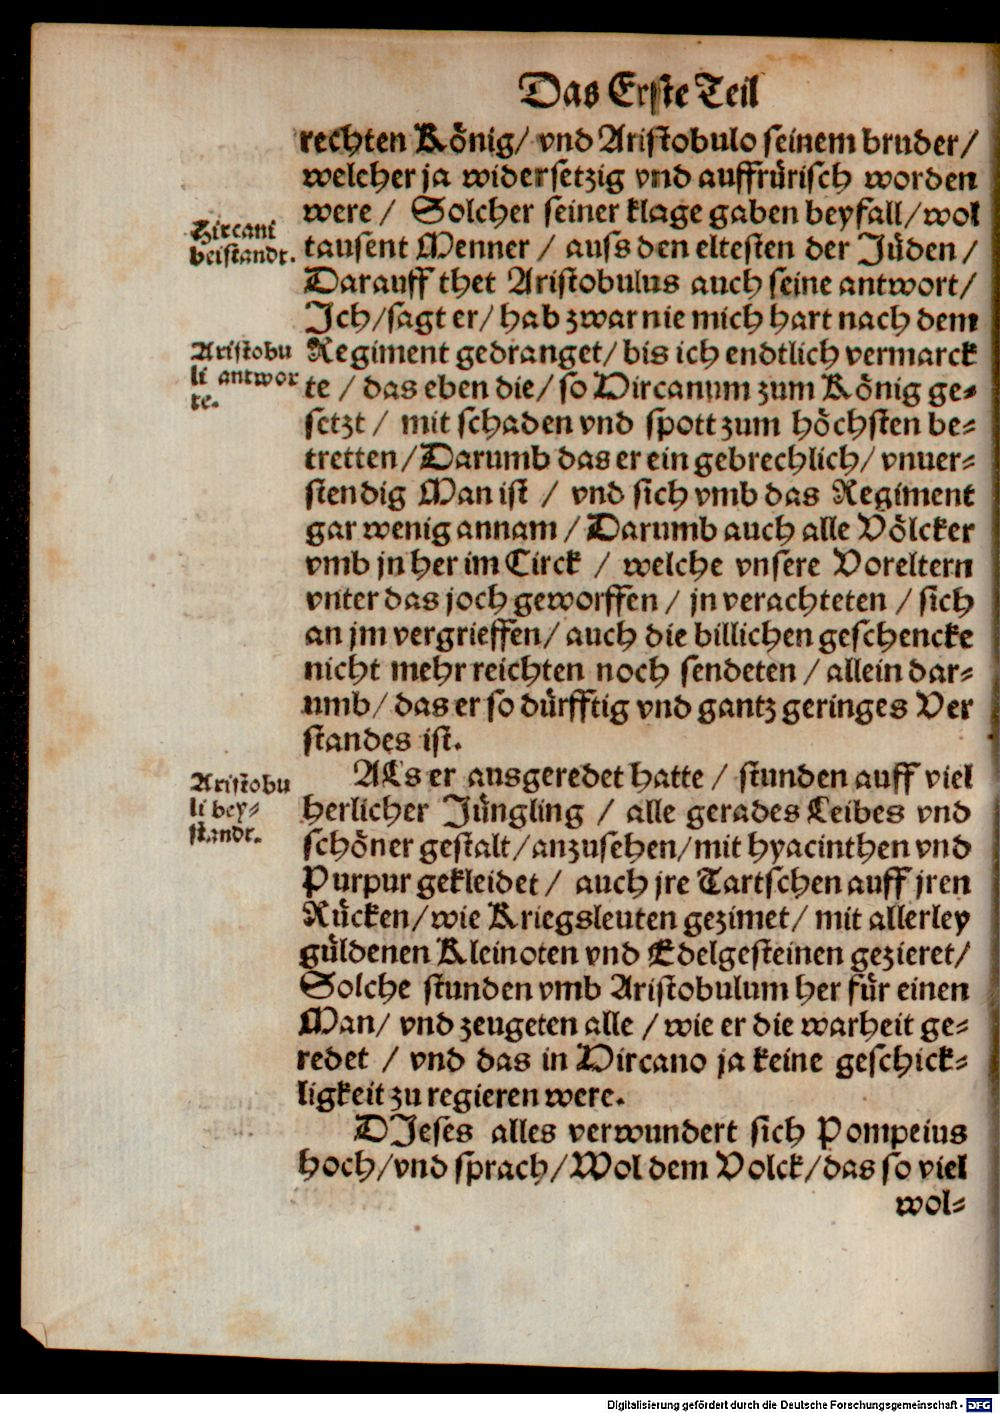 Das Erste Teil
rechten König/ vnd Aristobulo seinem bruder/
welcher ja widersetzig vnd auffrürisch worden
were / Solcher seiner klage gaben beyfall/wol
Hircani
beistandt.
tausent Menner / auss den eltesten der Jüden /
Darauff thet Aristobulus auch seine antwort/
Jch/sagt er/ hab zwar nie mich hart nach dem
Aristobu
li antwor
te.
Regiment gedranget/ bis ich endtlich vermarck
te / das eben die/ so Hircanum zum König ge-
setzt / mit schaden vnd spott zum höchsten be-
tretten/Darumb das er ein gebrechlich/ vnuer-
stendig Man ist / vnd sich vmb das Regiment
gar wenig annam / Darumb auch alle Völcker
vmb jn her im Circk / welche vnsere Voreltern
vnter das joch geworffen / jn verachteten / sich
an jm vergrieffen/ auch die billichen geschencke
nicht mehr reichten noch sendeten / allein dar-
umb/ das er so dürfftig vnd gantz geringes Ver
standes ist.
Aristobu
li bey-
standt.
ALs er ausgeredet hatte / stunden auff viel
herlicher Jüngling / alle gerades Leibes vnd
schöner gestalt/anzusehen/mit hyacinthen vnd
Purpur gekleidet / auch jre Tartschen auff jren
Rücken/wie Kriegsleuten gezimet/ mit allerley
güldenen Kleinoten vnd Edelgesteinen gezieret/
Solche stunden vmb Aristobulum her für einen
Man/ vnd zeugeten alle / wie er die warheit ge-
redet / vnd das in Hircano ja keine geschick-
ligkeit zu regieren were.
DJeses alles verwundert sich Pompeius
hoch/vnd sprach/Wol dem Volck/das so viel
wol-
Digitalisierung gefördert durch die Deutsche Forschungsgemeinschaft - DFG